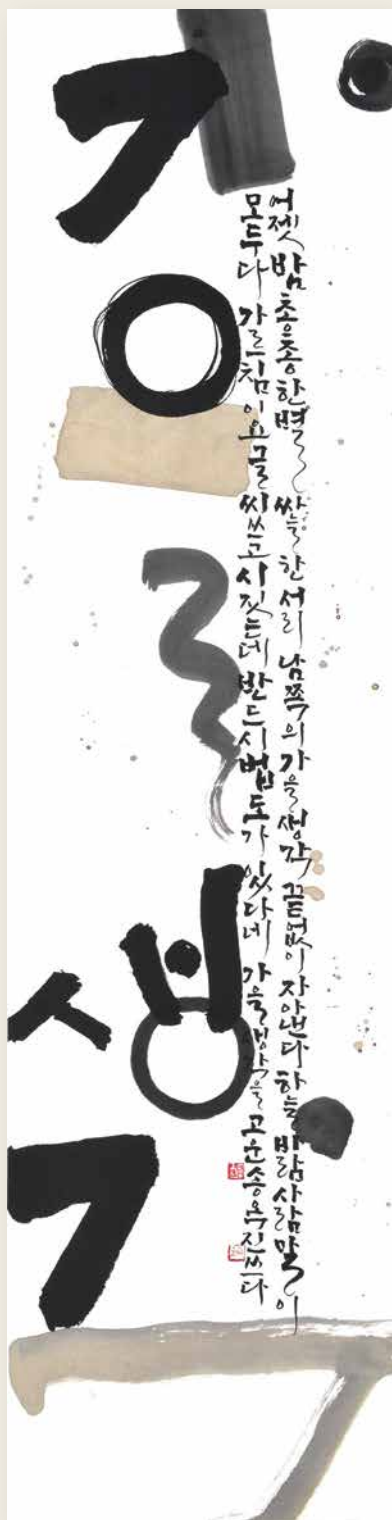 가을생각
어젯밤 총총한 별 싸늘한 서리 남쪽의 가을 생각 끝없이 자아낸다 하늘 바람 사람
모두 다 가르침이요 글씨 쓰고 시 짓는데 반드시 법도가 있다네 가을생각을 고운 쓰다